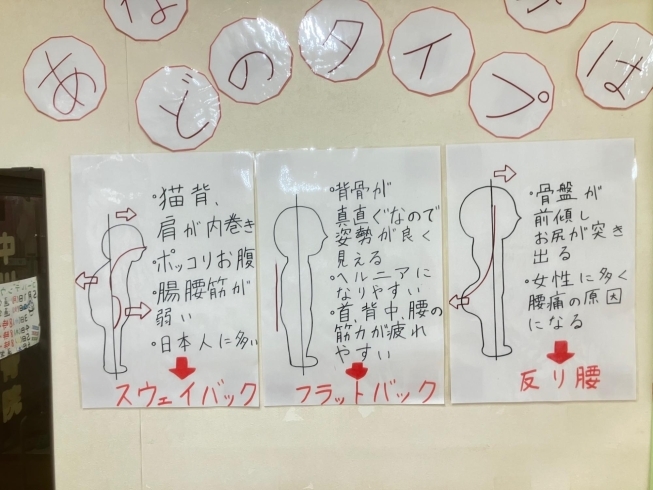 あなどのタイプは
・猫背、
肩が内巻き
・ポッコリお腹
・腸腰筋が
弱い
・日本人に多い
スウェイバック
・背骨が
真直ぐなので
姿勢が良く
見える
・ヘルニアに
なりやすい
・首、背中、腰の
筋力が疲れ
やすい
フラットバック
・骨盤が
前傾し
お尻が突き
出る
・女性に多く
腰痛の原因
になる
反り腰